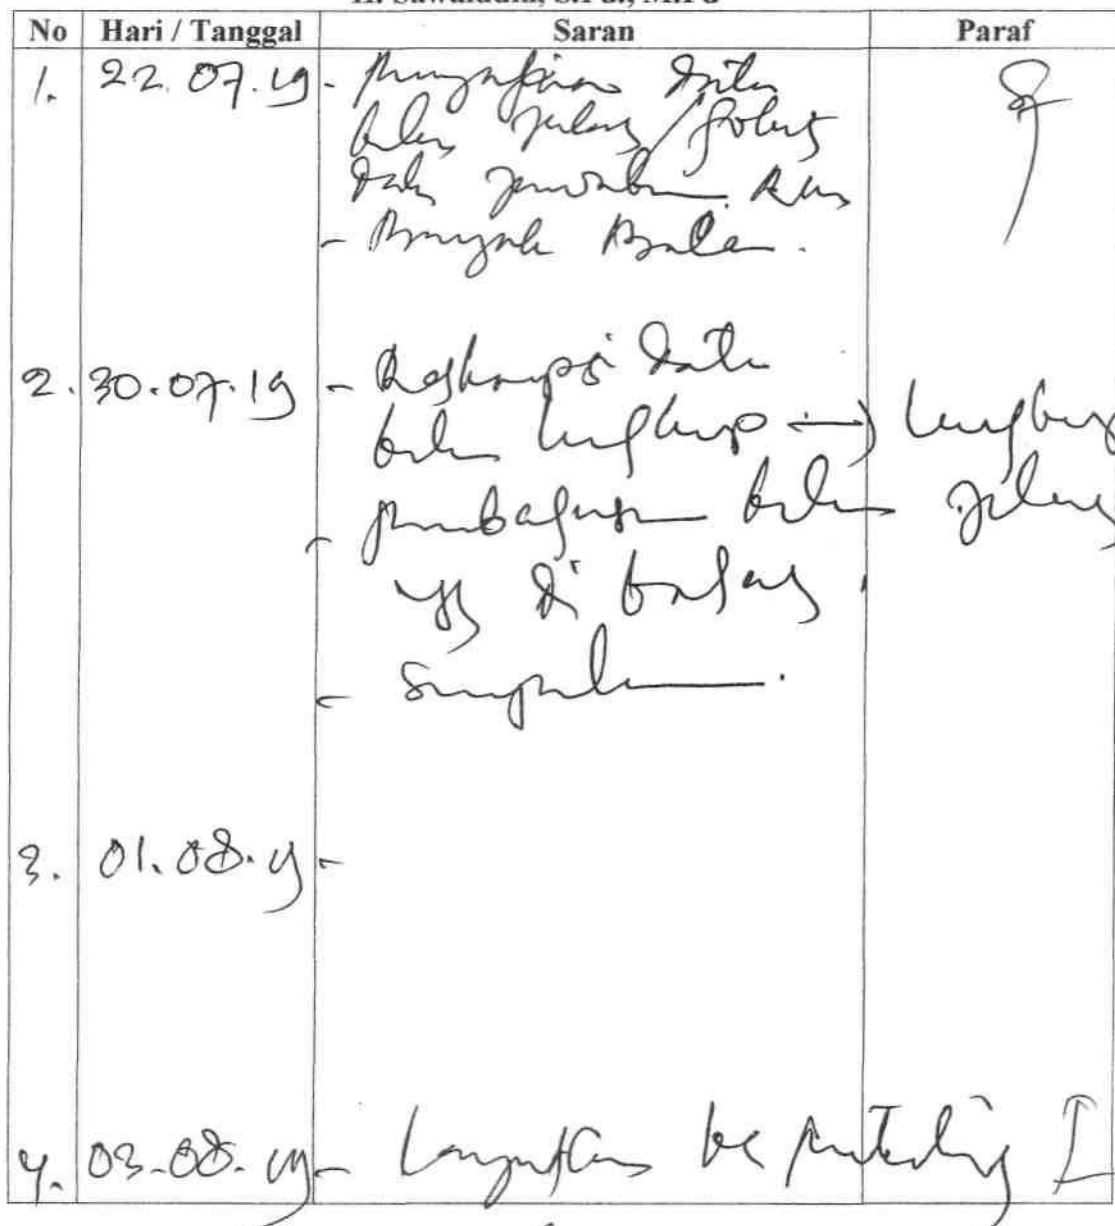 No Hari / Tanggal Saran Paraf
1. 22.07.19 - Penyajian data
belum jelas /
data
- Banyak Baca.
2. 30.07.19 - Deskripsi data
belum lengkap → lengkapi
- pembahasan belum jelas
yg di bahas.
- Simpulan.
3. 01.08.19 -
4. 03.08.19 - Lanjutkan ke pembimbing I